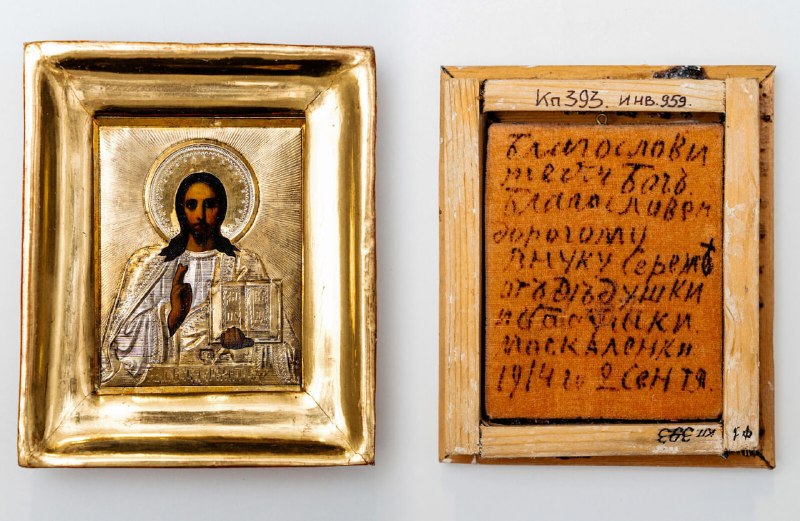 Кп 393. инв. 959.
Благослови
тебѣ Богъ.
Благословен
дорогому
внуку Сереже
отъ дѣдушки
и бабушки
Москаленко
1914 го 2 Сентя.
КП 393